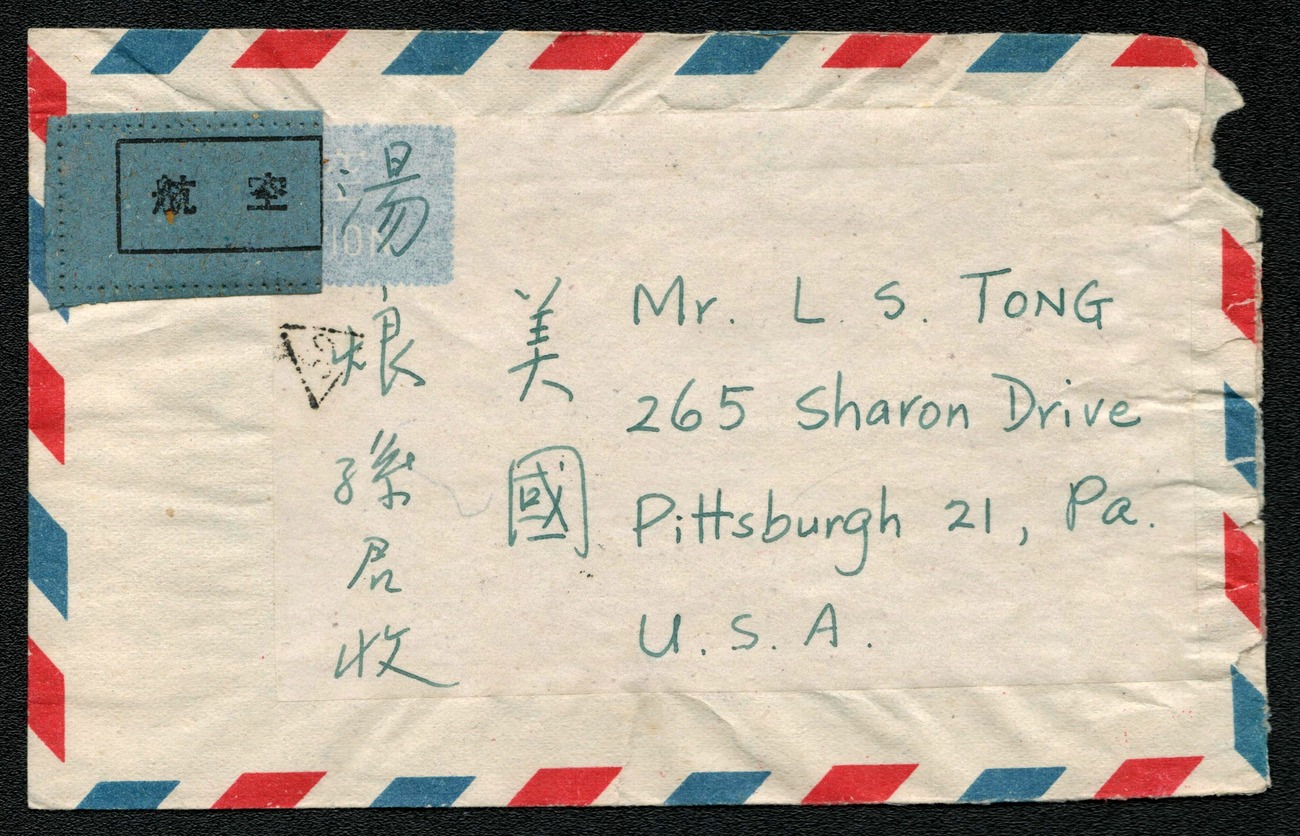 航空
湯烺孫君收
美國
Mr. L. S. TONG
265 Sharon Drive
Pittsburgh 21, Pa.
U. S. A.